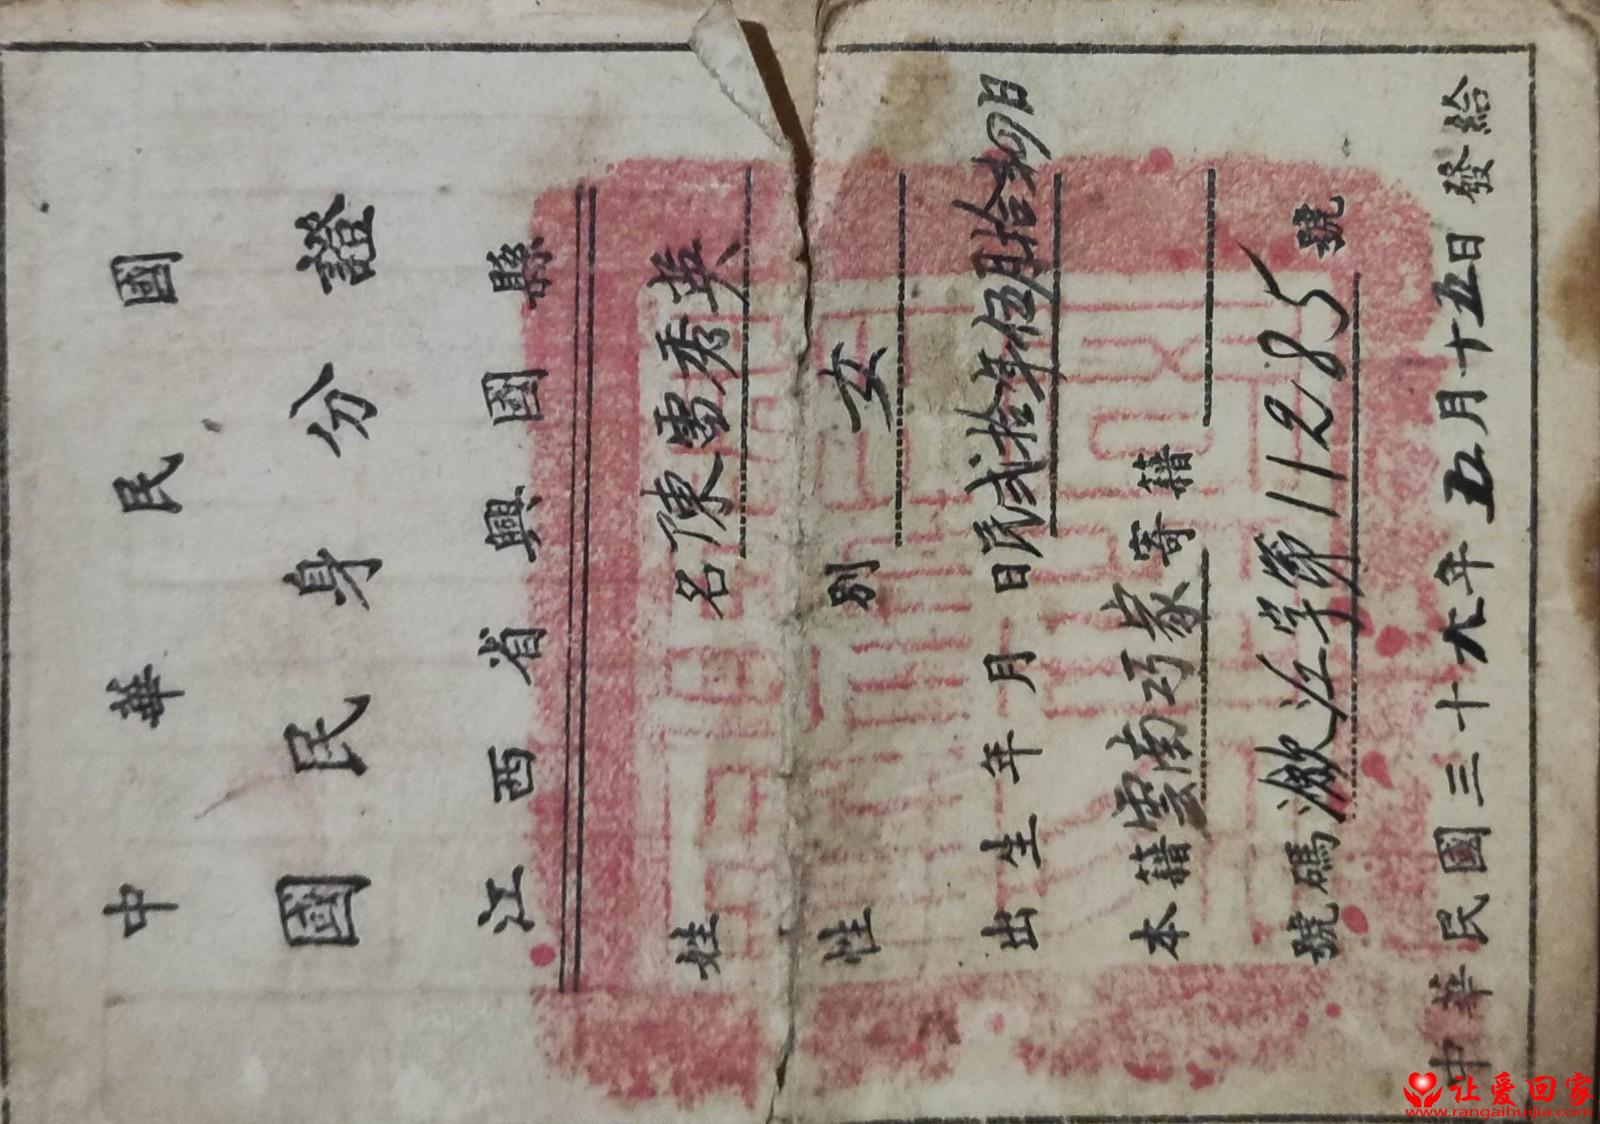 中華民國
國民身分證
江西省興國縣
姓名 陳雷秀英
性別 女
出生年月日 民弍拾年伍月拾初日
本籍 雲南巧家 寄籍
號碼 潋江字第11285號
中華民國三十六年五月十五日發給
让爱回家
www.rangaihuijia.com